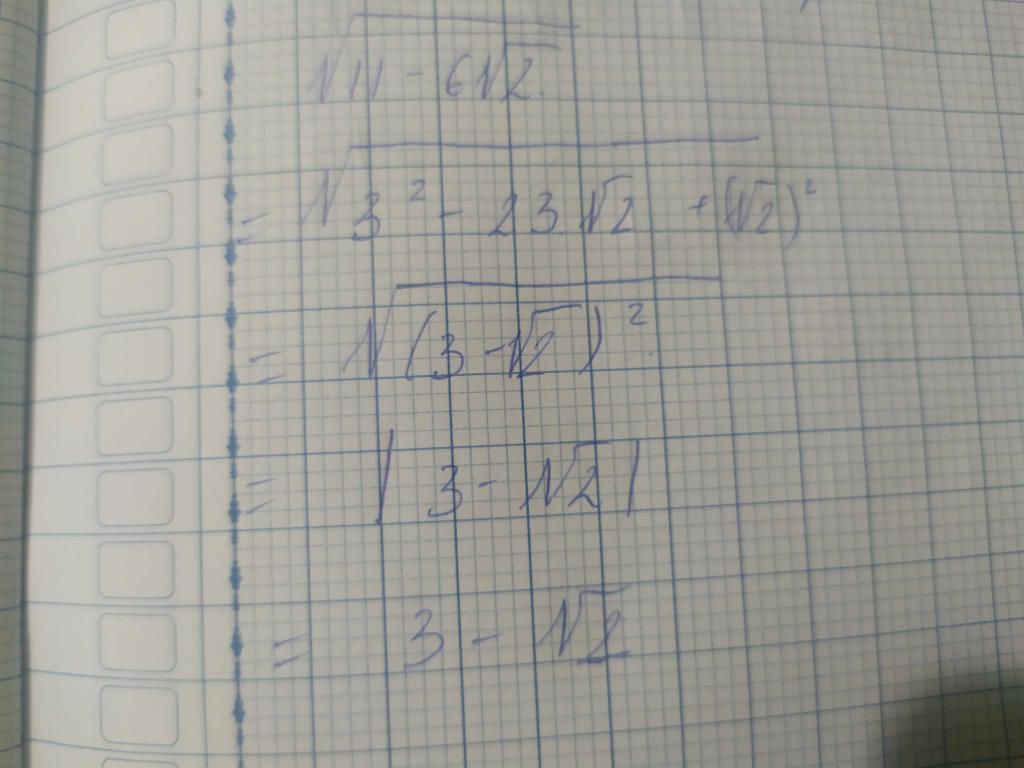 √11 - 6√2
= √3² - 23√2 + (√2)²
= √(3 - √2)²
= |3 - √2|
= 3 - √2